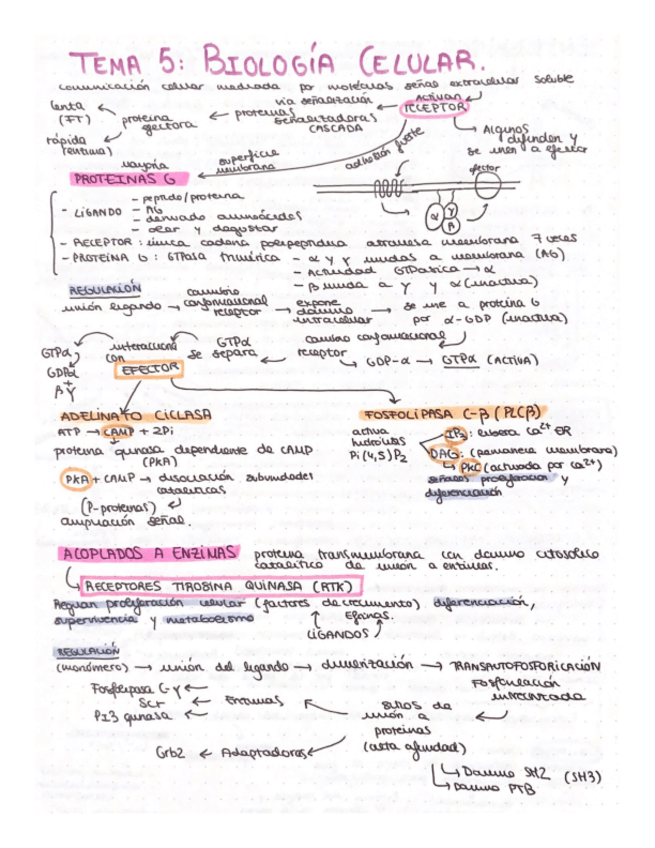 TEMA 5: BIOLOGÍA CELULAR.
comunicación celular mediada por moléculas señal extracelular soluble
activan
RECEPTOR
vía señalización
proteínas señalizadoras
CASCADA
proteína efectora
lenta (FT)
rápida
Algunos difunden y se unen a efector
superficie membrana
mayoría
PROTEINAS G
efector
α γ β
- LIGANDO
- peptido/proteina
- AG
- derivado aminoácidos
- olor y
- RECEPTOR: única cadena polipeptídica atraviesa membrana 7 veces
- PROTEÍNA G: GTPasa trimérica - α y γ unidas a membrana (AG)
- Actividad GTPasica → α
- β unida a γ y α (inactiva)
REGULACIÓN
unión ligando → cambio conformacional receptor → expone dominio intracelular → se une a proteína G por α-GDP (inactiva)
cambio conformacional receptor → GDP-α → GTPα (ACTIVA)
GTPα se separa
interacciona con EFECTOR
GTPα
GDPα
+
βγ
ADELINATO CICLASA
ATP → CAMP + 2Pi
proteína quinasa dependiente de CAMP (PKA)
PKA + CAMP → disociación subunidades catalíticas
(P-proteínas)
ampliación señal.
FOSFOLIPASA C-β (PLCβ)
activa hidrólisis Pi(4,5)P2
IP3: libera Ca2+ ER
DAG: (permanece membrana)
↳ PKC (activada por Ca2+)
señales proliferación y diferenciación
ACOPLADOS A ENZIMAS proteína transmembrana con dominio citosólico
catalítico de unión a enzimas.
↳ RECEPTORES TIROSINA QUINASA (RTK)
Regulan proliferación celular (factores de crecimiento) diferenciación,
supervivencia y metabolismo
Efrinas
LIGANDOS
REGULACIÓN
(monómero) → unión del ligando → dimerización → TRANSAUTOFOSFORICACIÓN
Fosforilación intercruzada
sitios de unión a proteínas (alta afinidad)
Enzimas
Fosfolipasa C-γ
Scr
PI3 quinasa
Grb2 ← Adaptadoras
↳ Dominio SH2 (SH3)
↳ Dominio PTB